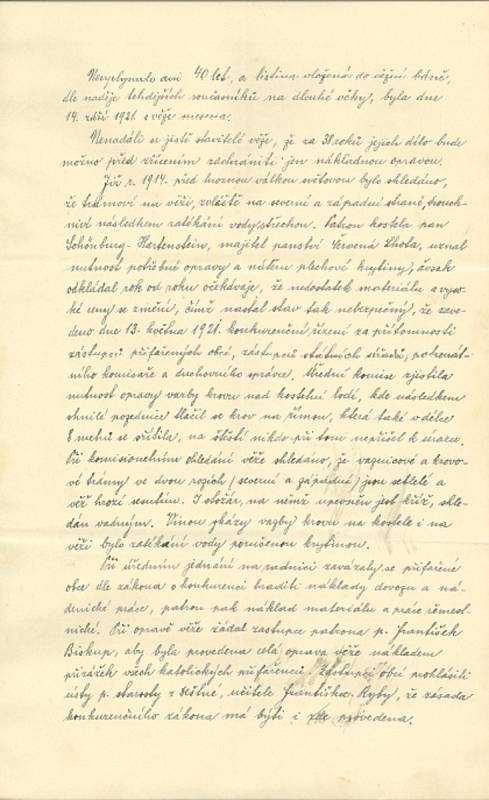 Neuplynulo ani 40 let, a listina vložená do věžní báně,
dle naděje tehdejších současníků na dlouhé věky, byla dne
14. září 1921 s věže snesena.
Nenadáli se jistě stavitelé věže, že za 38 roků jejich dílo bude
možno před zřícením zachrániti jen nákladnou opravou.
Již r. 1914. před hroznou válkou světovou bylo shledáno,
že trámoví na věži, zvláště na severní a západní straně, trouch-
niví následkem zatékání vody střechou. Patron kostela pan
Schönburg-Hartenstein, majitel panství Červená Lhota, uznal
nutnost potřebné opravy a nátěru plechové krytiny, avšak
odkládal rok od roku očekávaje, že nedostatek materiálu a vyso-
ké ceny se změní, čímž nastal stav tak nebezpečný, že zave-
deno dne 13. května 1921. konkurenční řízení za přítomnosti
zástupců přifařených obcí, zástupců státních úřadů, patronát-
ního komisaře a duchovního správce. Úřední komise zjistila
nutnost opravy vazby krovu nad kostelní lodí, kde následkem
shnilé pozednice tlačil se krov na římsu, která také v délce
8 metrů se sřítila, na štěstí nikdo při tom nepřišel k úrazu.
Při komisionelním ohledání věže shledáno, že vaznicové a krovo-
vé trámy ve dvou rozích (severní a západní) jsou setlelé a
věž hrozí sesutím. I stožár, na němž upevněn jest kříž, shle-
dán vadným. Vinou zkázy vazby krovu na kostele i na
věži bylo zatékání vody porušenou krytinou.
Při úředním jednání na radnici zavázaly se přifařené
obce dle zákona o konkurenci hraditi náklady dovozu a ná-
denické práce, patron pak náklad materiálu a práce řemesl-
nické. Při opravě věže žádal zástupce patrona p. František
Biskup, aby byla provedena celá oprava věže nákladem
přirážek všech katolických přifařenců. Zástupci obcí prohlásili
ústy p. starosty z učitele Františka Ryby, že zásada
konkurenčního zákona má býti i zde provedena.